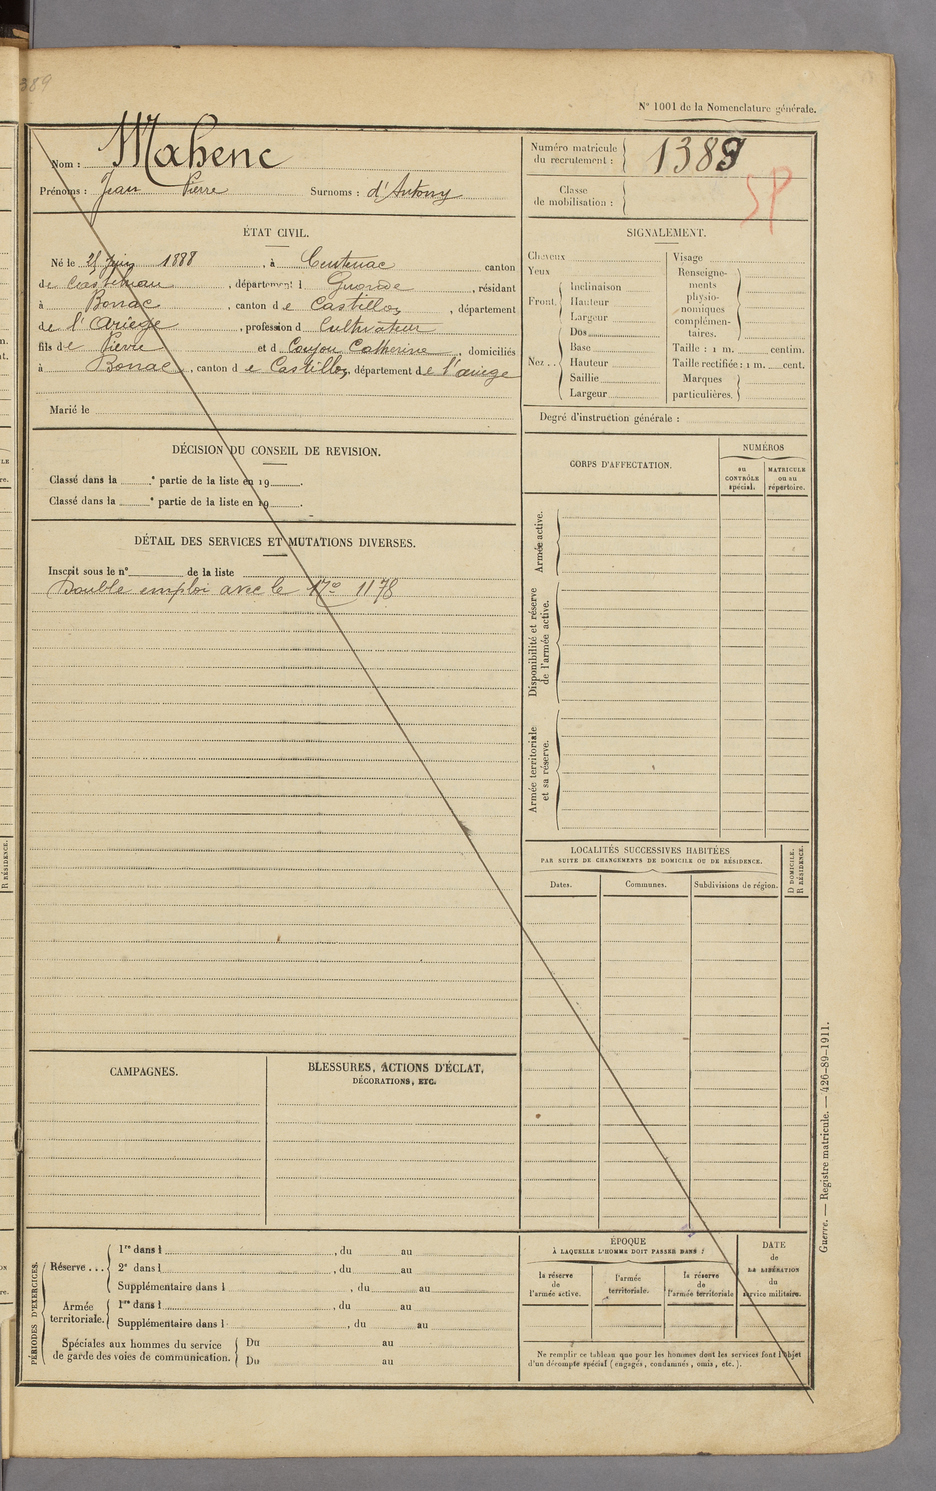 389
N° 1001 de la Nomenclature générale.
Nom : Mahenc
Prénoms : Jean Pierre Surnoms : d'Antony
Numéro matricule du recrutement : 1389
Classe de mobilisation :
SP
ÉTAT CIVIL.
Né le 25 juin 1888, à Centenac canton
de Castelnau, département d Gironde, résidant
à Bonac, canton de Castillon, département
de l'Ariège, profession d Cultivateur
fils de Pierre et d Coujou Catherine, domiciliés
à Bonac, canton de Castillon, département de l'ariege
Marié le
SIGNALEMENT.
Cheveux
Yeux
Front.
Inclinaison
Hauteur
Largeur
Nez...
Dos
Base
Hauteur
Saillie
Largeur
Visage
Renseigne-
ments
physio-
nomiques
complémen-
taires.
Taille : 1 m. centim.
Taille rectifiée : 1 m. cent.
Marques
particulières.
Degré d'instruction générale :
DÉCISION DU CONSEIL DE REVISION.
Classé dans la ° partie de la liste en 19 .
Classé dans la ° partie de la liste en 19 .
DÉTAIL DES SERVICES ET MUTATIONS DIVERSES.
Inscrit sous le n° de la liste
Double emploi avec le N° 1178
CORPS D'AFFECTATION.
NUMÉROS
au CONTRÔLE spécial.
MATRICULE ou au répertoire.
Armée active.
Disponibilité et réserve de l'armée active.
Armée territoriale et sa réserve.
LOCALITÉS SUCCESSIVES HABITÉES
PAR SUITE DE CHANGEMENTS DE DOMICILE OU DE RÉSIDENCE.
Dates.
Communes.
Subdivisions de région.
D DOMICILE.
R RÉSIDENCE.
CAMPAGNES.
BLESSURES, ACTIONS D'ÉCLAT,
DÉCORATIONS, ETC.
PÉRIODES D'EXERCICES.
Réserve...
1re dans l , du au
2e dans l , du au
Supplémentaire dans l , du au
Armée territoriale.
1re dans l , du au
Supplémentaire dans l , du au
Spéciales aux hommes du service
de garde des voies de communication.
Du au
Du au
ÉPOQUE
À LAQUELLE L'HOMME DOIT PASSER DANS :
la réserve de l'armée active.
l'armée territoriale.
la réserve de l'armée territoriale
DATE de LA LIBÉRATION du service militaire.
Ne remplir ce tableau que pour les hommes dont les services font l'objet
d'un décompte spécial (engagés, condamnés, omis, etc.).
Guerre. — Registre matricule. — 426-89-1911.
R RÉSIDENCE.